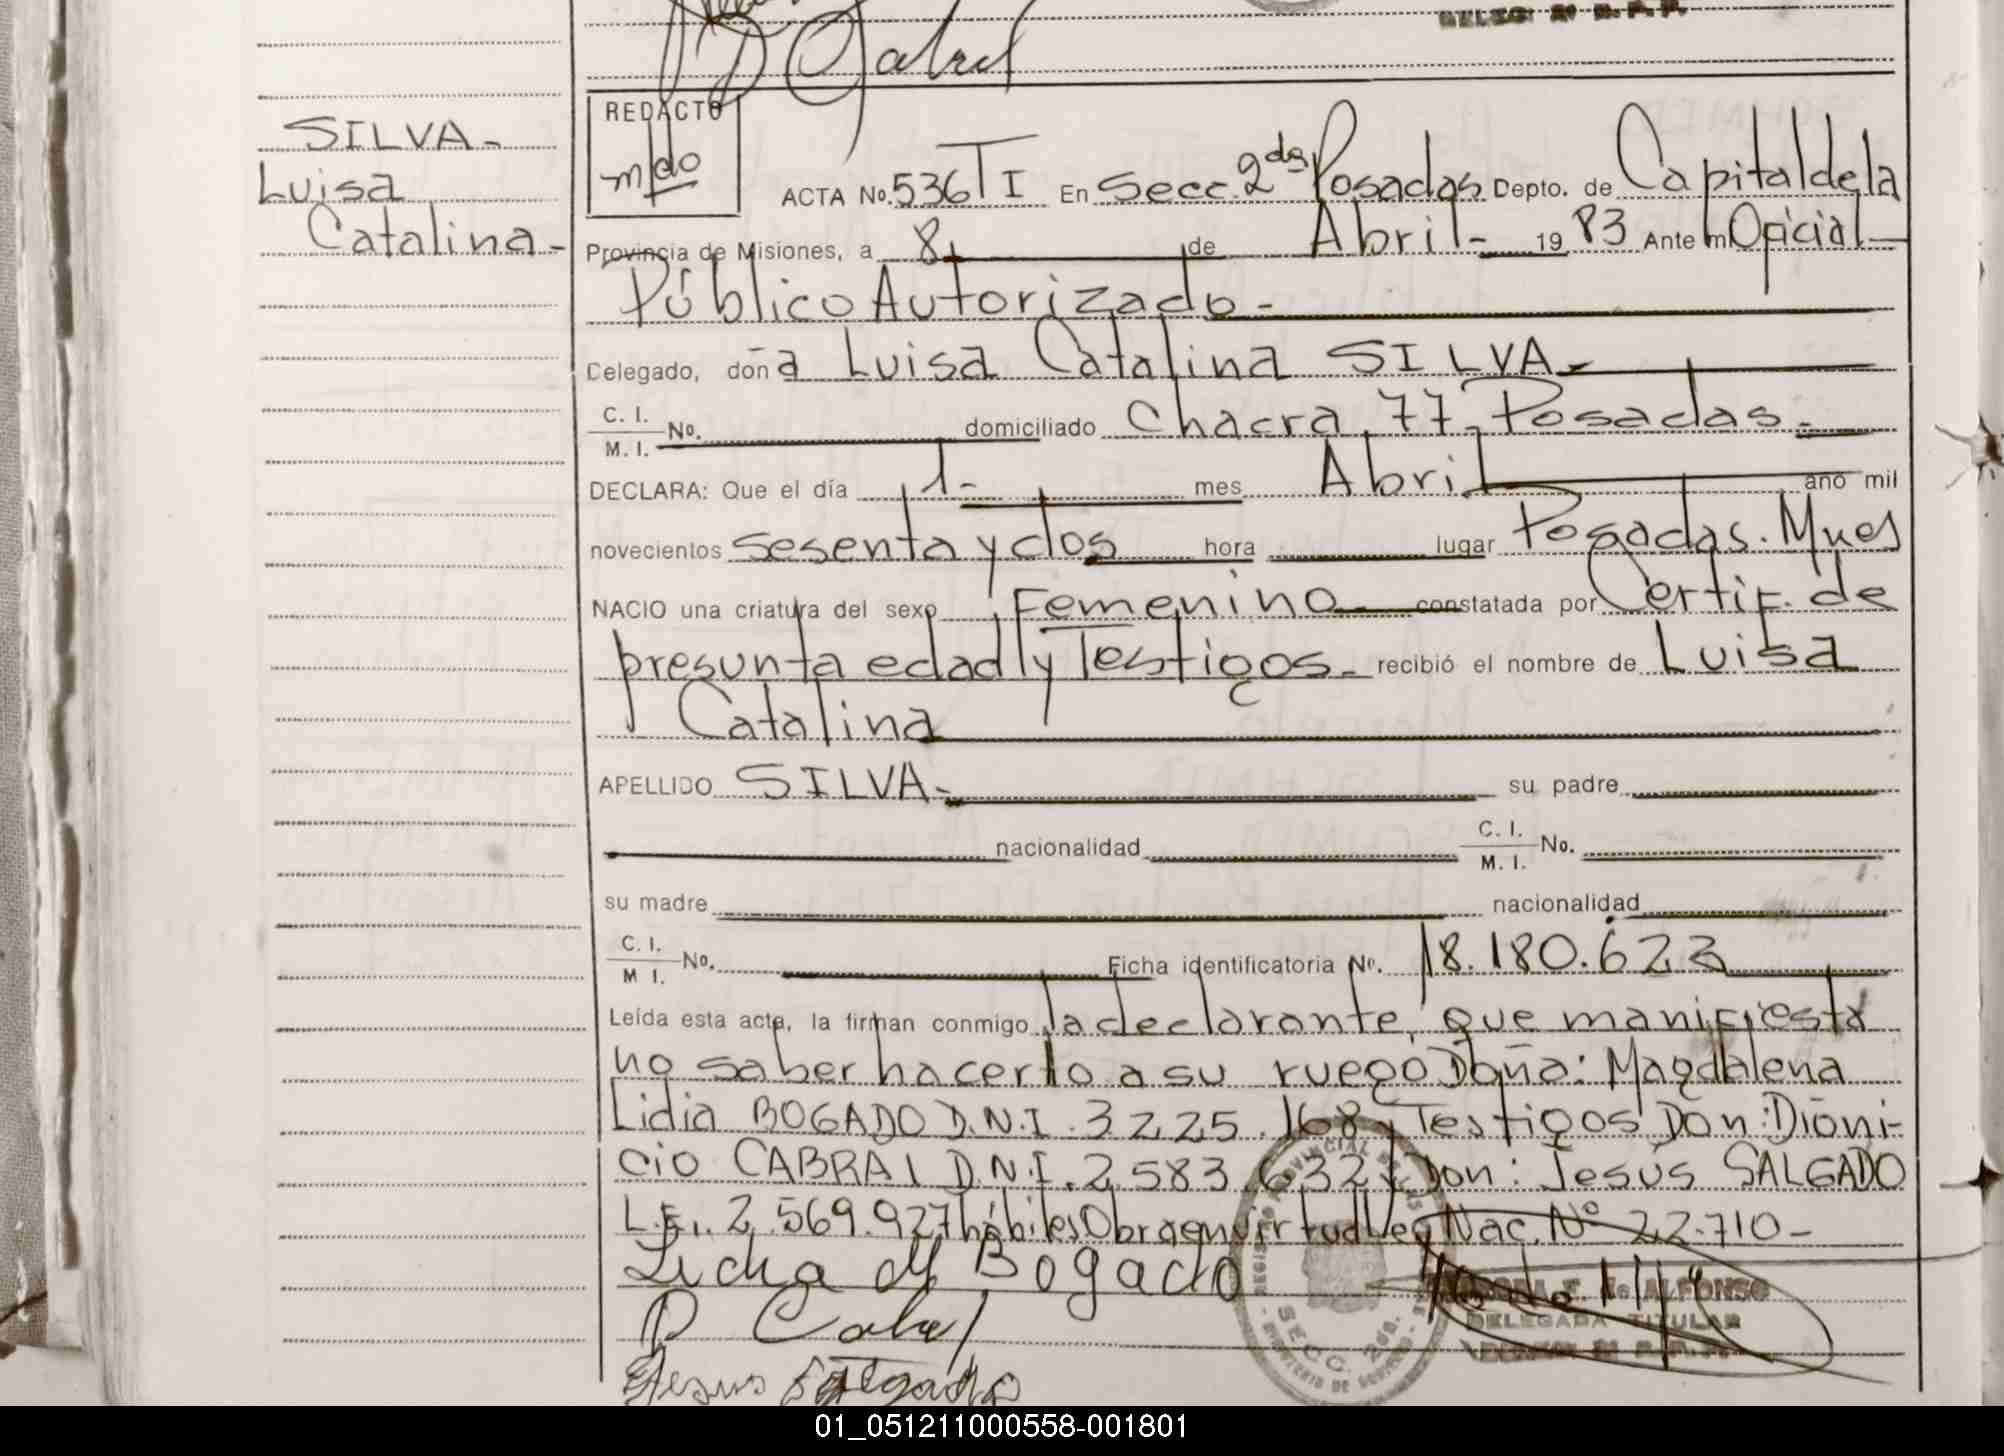 D Cabral
DELEG. 2ª S.P.P.
SILVA-
Luisa
Catalina-
REDACTO
mdo
ACTA No. 536 T I En Secc. 2da Posadas Depto. de Capital de la
Provincia de Misiones, a 8 de Abril- 1983 Ante mí Oficial
Público Autorizado-
Celegado, doña Luisa Catalina SILVA-
C. I.
M. I. No. domiciliado Chacra 77-Posadas-
DECLARA: Que el día 1- mes Abril año mil
novecientos sesenta y dos hora lugar Posadas. Mnes
NACIO una criatura del sexo Femenino- constatada por Certif. de
presunta edad y Testigos- recibió el nombre de Luisa
Catalina
APELLIDO SILVA- su padre
nacionalidad C. I.
M. I. No.
su madre nacionalidad
C. I.
M I. No. Ficha identificatoria No. 18.180.622
Leída esta acta, la firman conmigo la declarante, que manifiesta
no saber hacerlo a su ruego Doña: Magdalena
Lidia BOGADO D.N.I. 3225.168 y Testigos Don: Dioni-
cio CABRAL D.N.I. 2.583.632 y Don: Jesús SALGADO
L.E. 2.569.927 hábiles Obra en virtud Ley Nac. Nº 22.710-
Lidia M Bogado
D Cabral
Jesus Salgado
SECC. 2da.
E. de ALFONSO
DELEGADA TITULAR
01_051211000558-001801